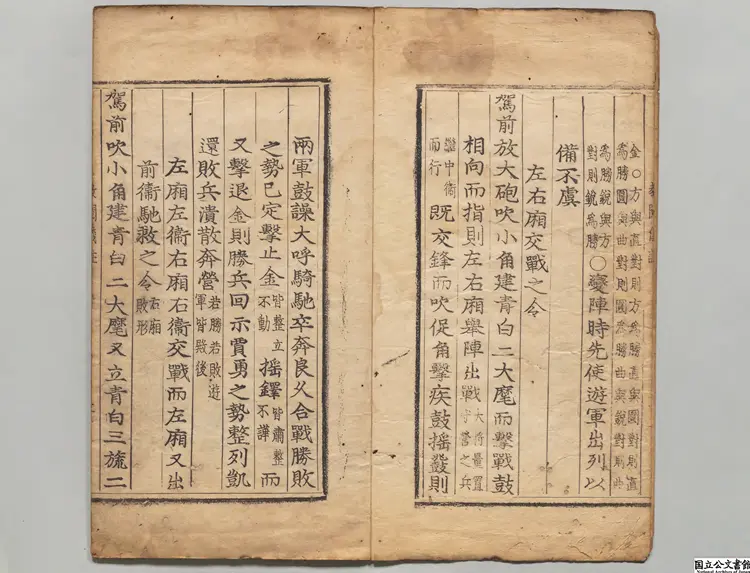 金○方與直對則方爲勝直與圓對則直
爲勝圓與曲對則圓爲勝曲與銳對則曲
爲勝銳與方
對則銳爲勝
○變陣時先使遊軍出列以
備不虞
左右廂交戰之令
駕前放大砲吹小角建青白二大麾而擊戰鼓
相向而指則左右廂舉陣出戰大將量置守營之兵
繼中衛而行旣交鋒而吹促角擊疾鼓搖發則
兩軍鼓譟大呼騎馳卒奔良久合戰勝敗
之勢已定擊止金皆整立不動搖鐸皆肅整不譁而
又擊退金則勝兵回示賈勇之勢整列凱
還敗兵潰散奔營若勝若敗遊軍皆殿後
左廂左衛右廂右衛交戰而左廂又出
前衛馳救之令右廂敗形
駕前吹小角建青白二大麾又立青白三旒二
国立公文書館
National Archives of Japan